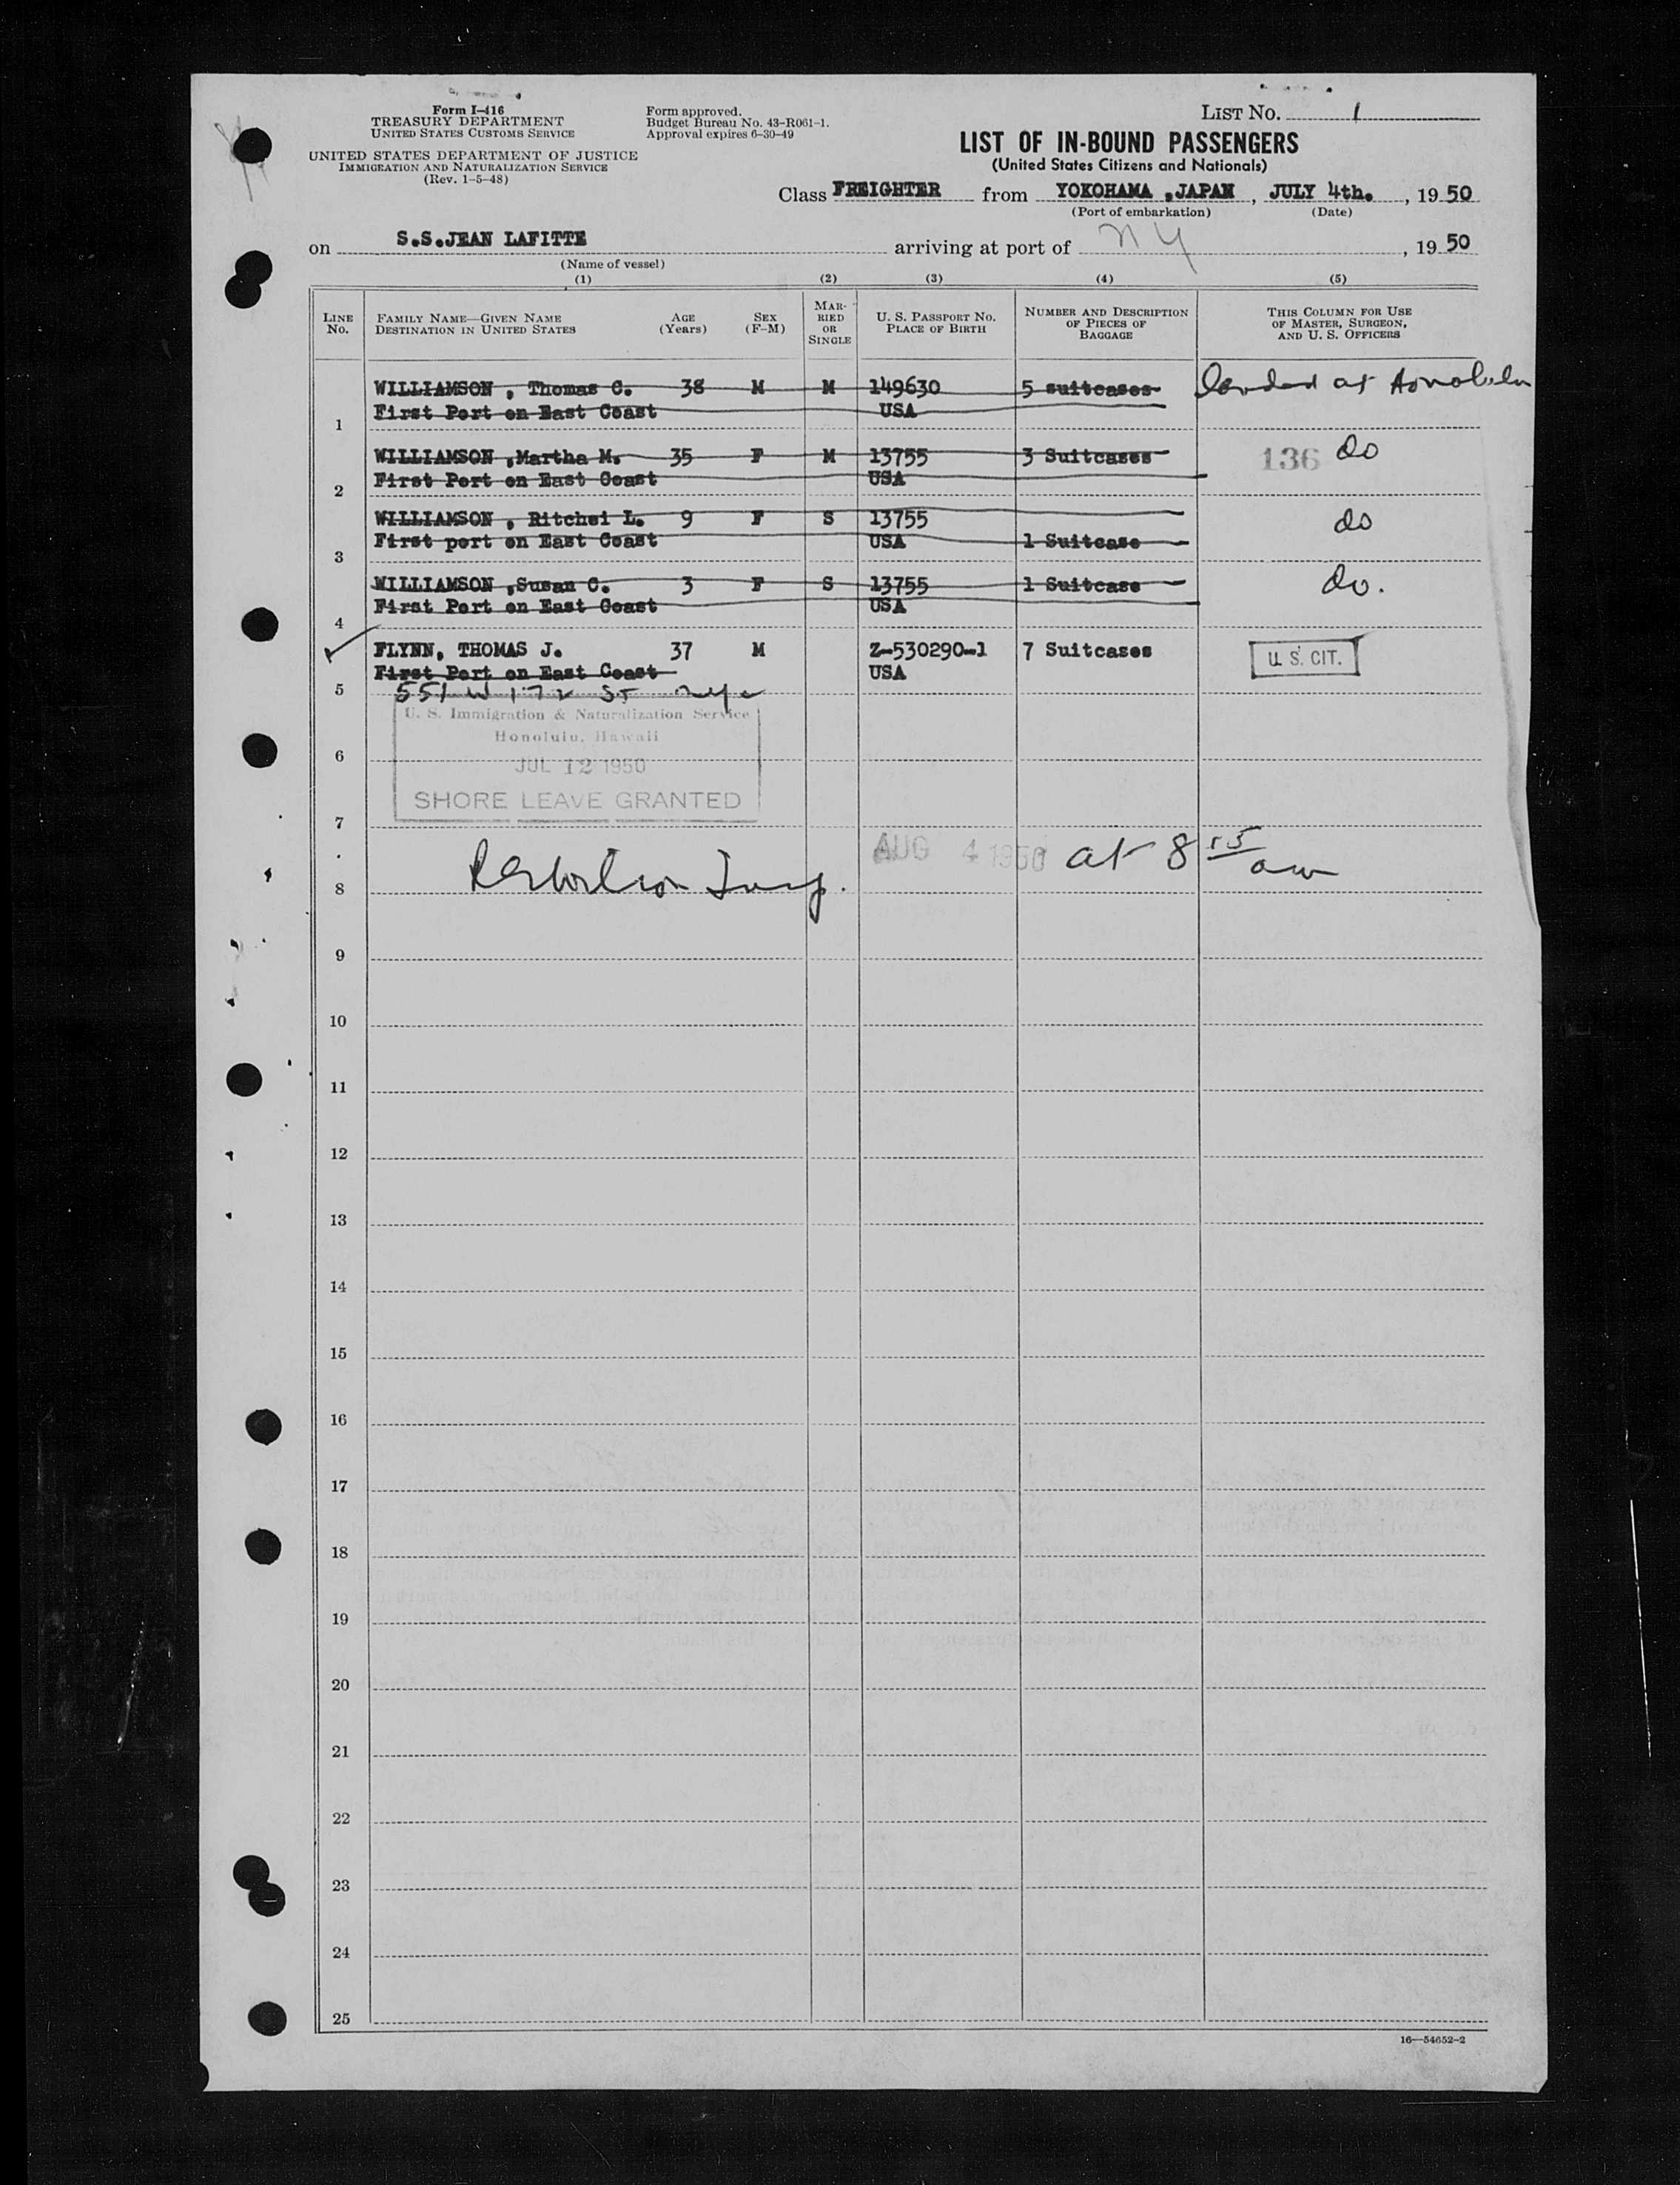 Form I-416
TREASURY DEPARTMENT
UNITED STATES CUSTOMS SERVICE
UNITED STATES DEPARTMENT OF JUSTICE
IMMIGRATION AND NATURALIZATION SERVICE
(Rev. 1-5-48)
Form approved.
Budget Bureau No. 43-R061-1.
Approval expires 6-30-49
LIST NO. 1
LIST OF IN-BOUND PASSENGERS
(United States Citizens and Nationals)
Class FREIGHTER from YOKOHAMA ,JAPAN , JULY 4th. , 19 50
(Port of embarkation) (Date)
on S.S.JEAN LAFITTE arriving at port of NY , 19 50
(Name of vessel)
(1) (2) (3) (4) (5)
LINE NO. FAMILY NAME—GIVEN NAME DESTINATION IN UNITED STATES AGE (Years) SEX (F-M) MARRIED OR SINGLE U. S. PASSPORT NO. PLACE OF BIRTH NUMBER AND DESCRIPTION OF PIECES OF BAGGAGE THIS COLUMN FOR USE OF MASTER, SURGEON, AND U. S. OFFICERS
WILLIAMSON , Thomas C. 38 M M 149630 5 suitcases Landed at Honolulu
First Port on East Coast USA
1
WILLIAMSON ,Martha M. 35 F M 13755 3 Suitcases 136 do
First Port on East Coast USA
2
WILLIAMSON , Ritchei L. 9 F S 13755 do
First port on East Coast USA 1 Suitcase
3
WILLIAMSON ,Susan C. 3 F S 13755 1 Suitcase do.
First Port on East Coast USA
4
FLYNN, THOMAS J. 37 M Z-530290-1 7 Suitcases U. S. CIT.
First Port on East Coast USA
5 551 W 172 St nyc
U. S. Immigration & Naturalization Service
Honolulu, Hawaii
6
JUL 12 1950
SHORE LEAVE GRANTED
7
AUG 4 1950 at 8 15 am
8
9
10
11
12
13
14
15
16
17
18
19
20
21
22
23
24
25
16—54652-2